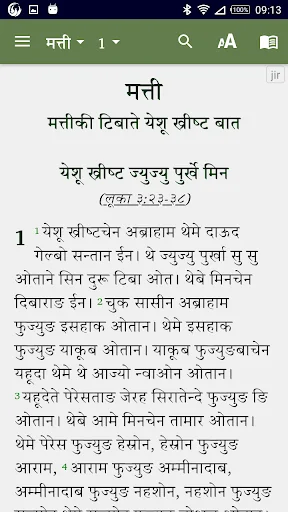 100% 09:13
मत्ती 1 AA
jir
मत्ती
मत्तीकी टिबाते येशू ख्रीष्ट बात
येशू ख्रीष्ट ज्युज्यु पुर्खे मिन
(लूका ३:२३-३८)
1 1 येशू ख्रीष्टचेन अब्राहाम थेमे दाऊद
गेल्बो सन्तान ईन। थे ज्युज्यु पुर्खा सु सु
ओताने सिन दुरू टिबा ओत। थेबे मिनचेन
दिबाराङ ईन। 2 चुक सासीन अब्राहाम
फुज्युङ इसहाक ओतान। थेमे इसहाक
फुज्युङ याकूब ओतान। याकूब फुज्युङबाचेन
यहूदा थेमे थे आज्यो न्वाओन ओतान।
3 यहूदेते पेरेसताङ जेरह सिरातेन्दे फुज्युङ ङि
ओतान। थेबे आमे मिनचेन तामार ओतान।
थेमे पेरेस फुज्युङ हेस्रोन, हेस्रोन फुज्युङ
आराम, 4 आराम फुज्युङ अम्मीनादाब,
अम्मीनादाब फुज्युङ नहशोन, नहशोन फुज्युङ